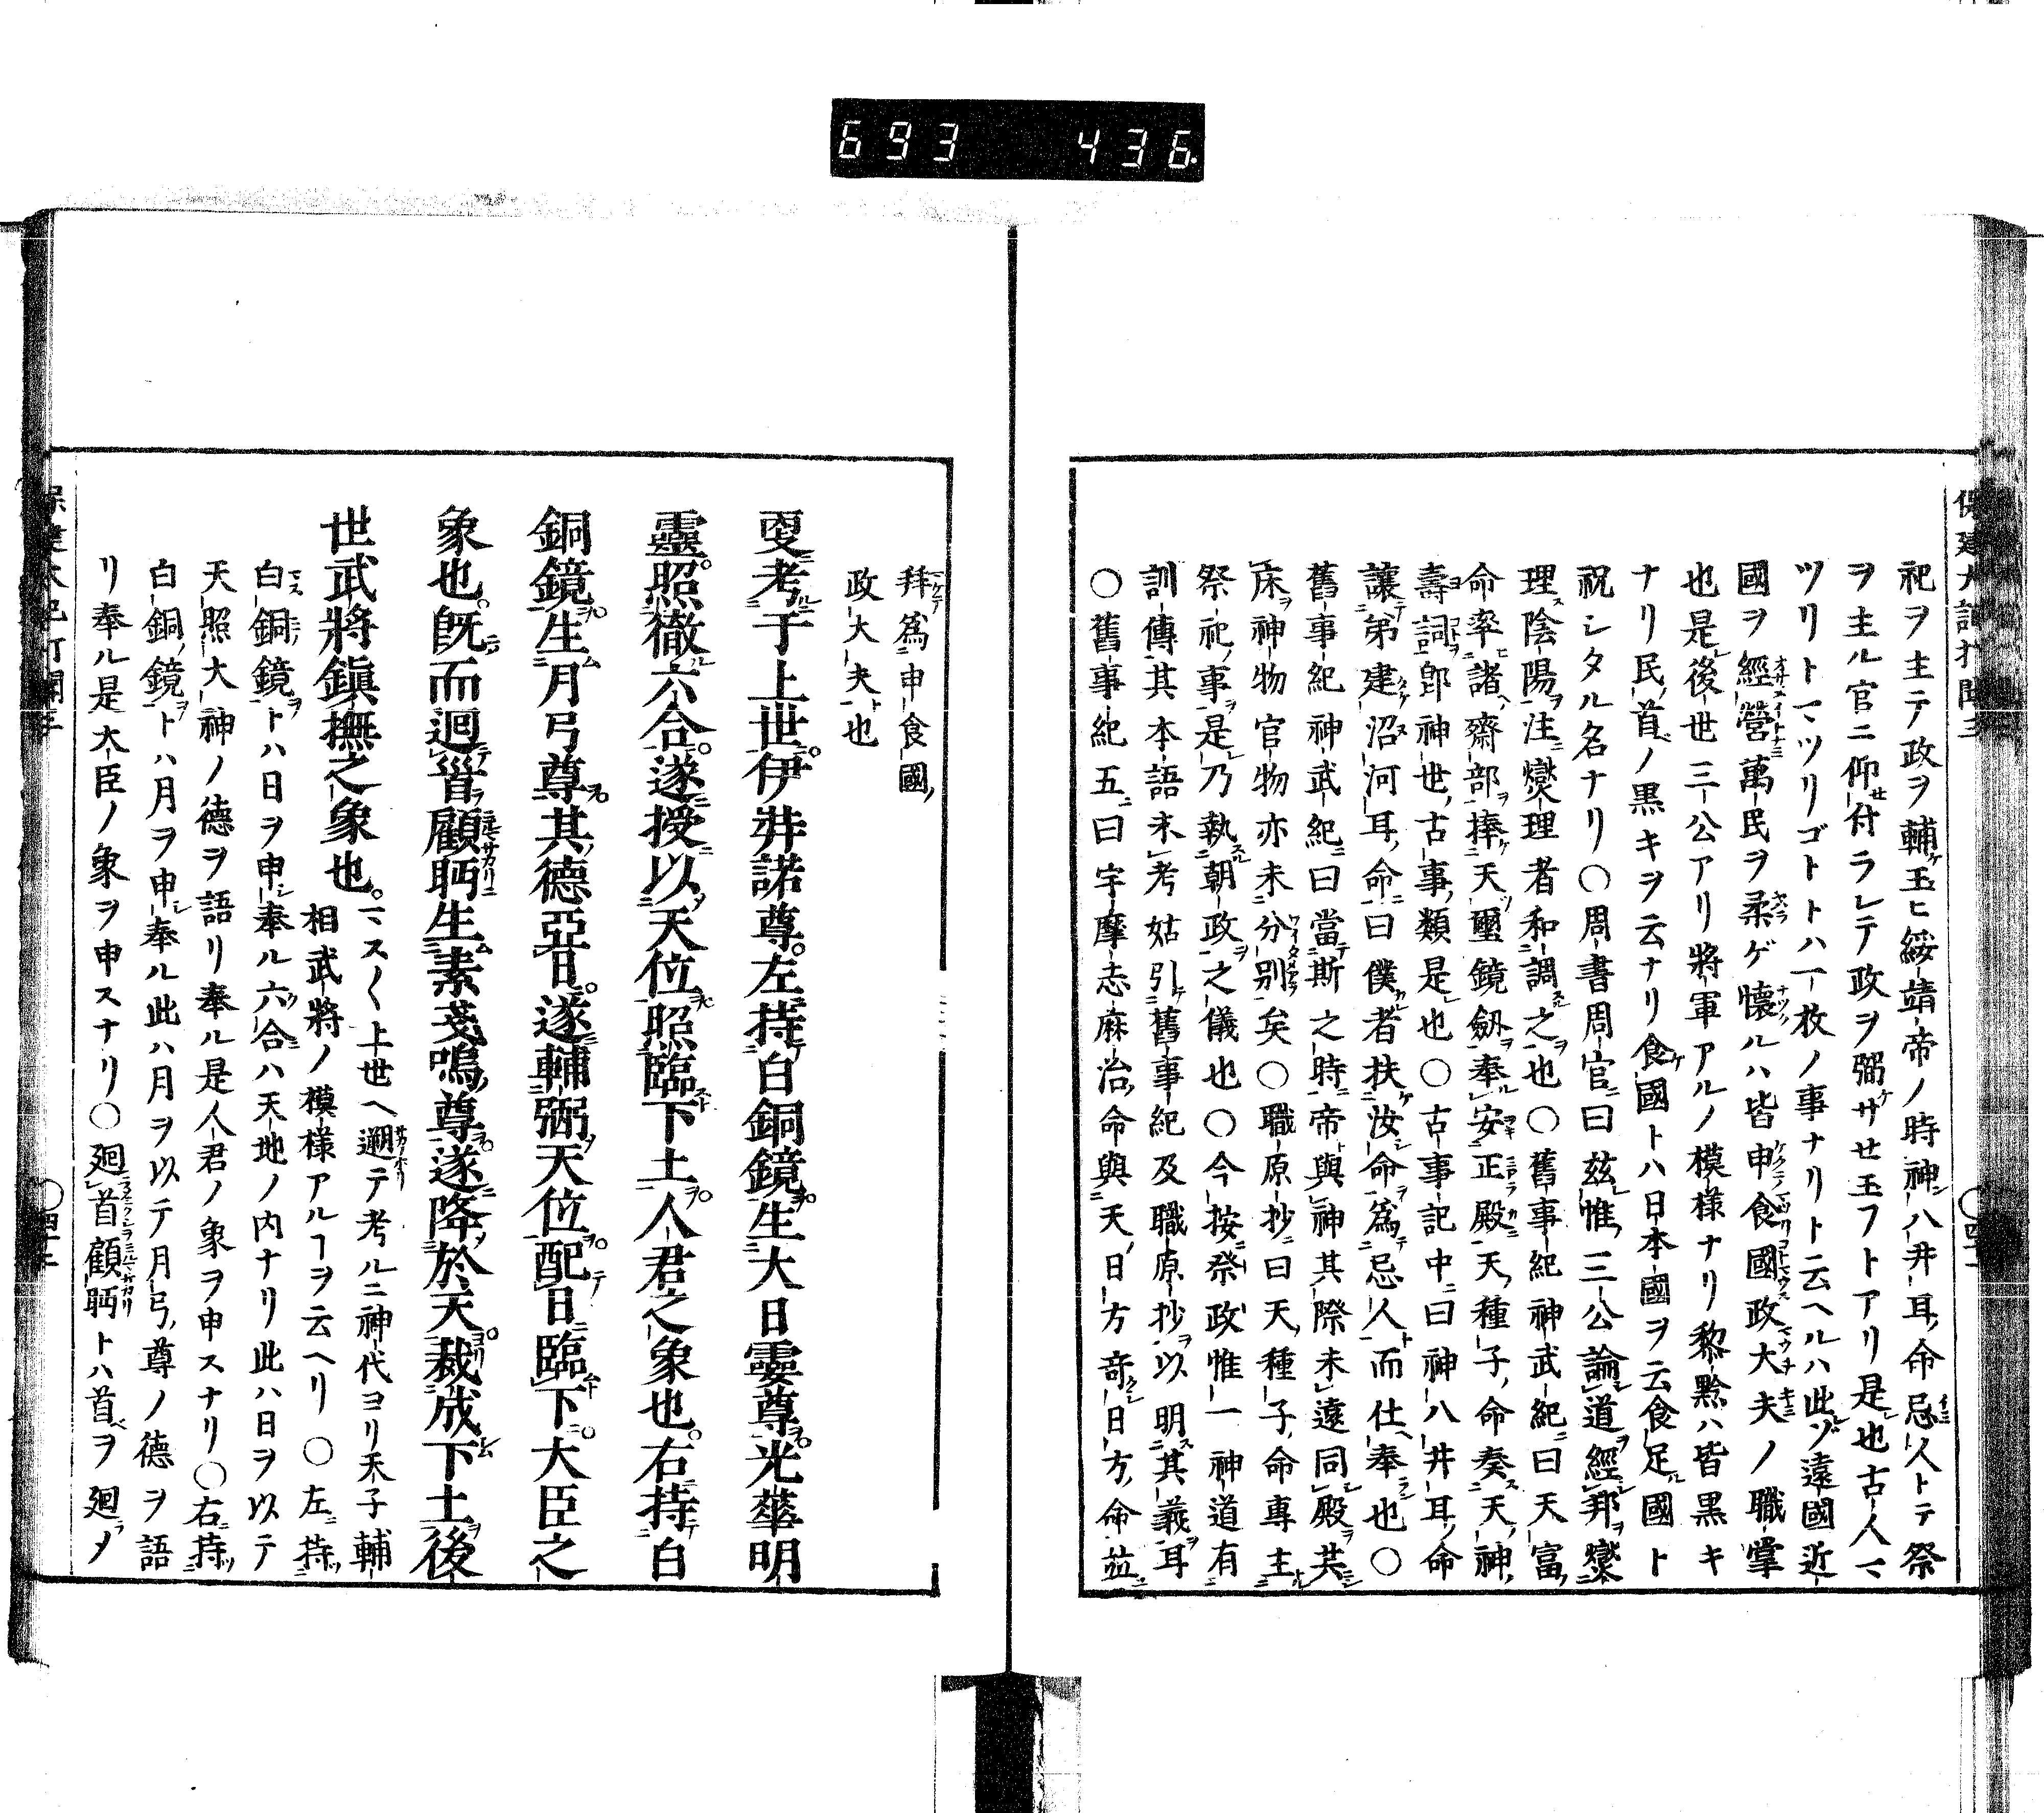 693 436
保建大記打聞三
祀ヲ主テ政ヲ輔ケ玉ヒ綏靖帝ノ時神八井耳命忌人トテ祭
ヲ主ル官ニ仰付ラレテ政ヲ弼ケサセ玉フトアリ是也古人マ
ツリトマツリゴトトハ一枚ノ事ナリト云ヘルハ此ゾ遠國近
國ヲ經營萬民ヲ柔ゲ懷ルハ皆申食國政大夫ノ職掌
也是後世三公アリ將軍アルノ模様ナリ黎黔ハ皆黒キ
ナリ民ノ首ノ黒キヲ云ナリ食國トハ日本國ヲ云食足國ト
祝シタル名ナリ○周書周官曰茲惟三公論道經邦燮
理陰陽注燮理者和調之也○舊事紀神武紀曰天富
命率諸齋部捧天璽鏡劔奉安正殿天種子命奏天神
壽詞卽神世古事類是也○古事記中曰神八井耳命
讓弟建沼河耳命曰僕者扶汝命爲忌人而仕奉也○
舊事紀神武紀曰當斯之時帝與神其際未遠同殿共
床神物官物亦未分別矣○職原抄曰天種子命專主
祭祀事是乃執朝政之儀也○今按祭政惟一神道有
訓傳其本語未考姑引舊事紀及職原抄以明其義耳
○舊事紀五曰宇摩志麻治命與天日方奇日方命並
拜爲申食國
政大夫也
更考于上世伊弉諾尊左持白銅鏡生大日孁尊光華明
靈照徹六合遂授以天位照臨下土人君之象也右持白
銅鏡生月弓尊其德亞日遂輔弼天位配日臨下大臣之
象也旣而迴首顧眄生素戔嗚尊遂降於天裁成下土後
世武將鎭撫之象也
マス〱上世ヘ遡テ考ルニ神代ヨリ天子輔
相武將ノ模様アルヿヲ云ヘリ○左持
白銅鏡トハ日ヲ申奉ル六合ハ天地ノ内ナリ此ハ日ヲ以テ
天照大神ノ德ヲ語リ奉ル是人君ノ象ヲ申スナリ○右持
白銅鏡トハ月ヲ申奉ル此ハ月ヲ以テ月弓尊ノ德ヲ語
リ奉ル是大臣ノ象ヲ申スナリ○廻首顧眄トハ首ヲ廻メ